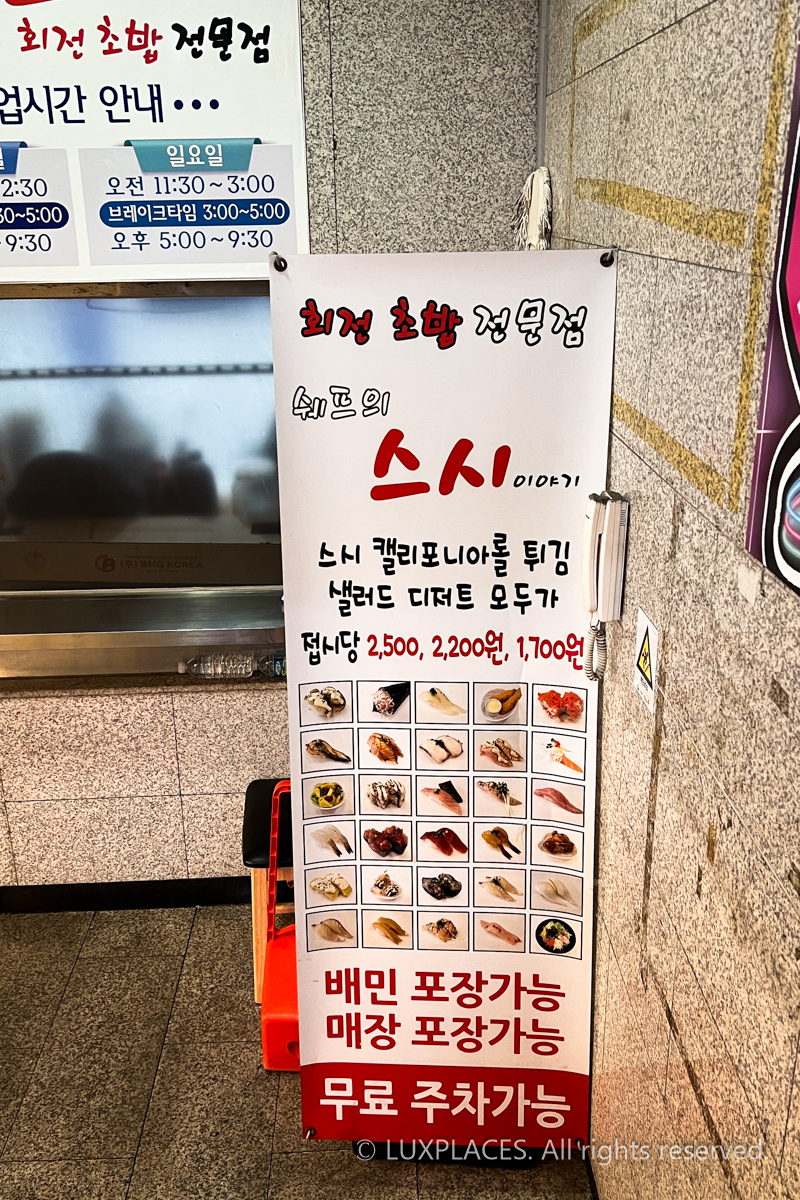 회전 초밥 전문점
업시간 안내...
일요일
2:30
오전 11:30~3:00
30~5:00
브레이크타임 3:00~5:00
9:30
오후 5:00~9:30
(주) BMG KOREA
회전 초밥 전문점
쉐프의
스시 이야기
스시 캘리포니아롤 튀김
샐러드 디저트 모두가
접시당 2,500, 2,200원, 1,700원
배민 포장가능
매장 포장가능
무료 주차가능
© LUXPLACES. All rights reserved.